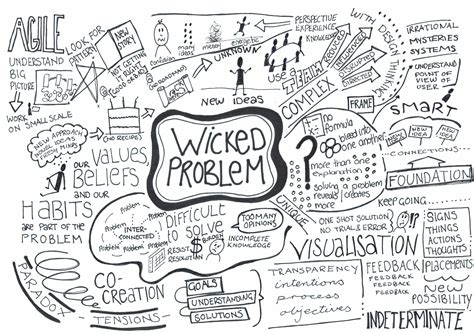 AGILE
UNDERSTAND
BIG
PICTURE
WORK
ON SMALL SCALE
LOOK FOR
PATTERN
NEW
STORY
NOT GETTING
GOOD
confusion
many
ideas
project
UNKNOWN
NEW IDEAS
PERSPECTIVE
EXPERIENCE
KNOWLEDGE
USE
COMPLEX
WITH DESIGN
THINKING
FRAME
IRRATIONAL
MYSTERIES
SYSTEMS
UNDERSTAND
POINT OF VIEW
OF USER
SMART
NEW IDEA
NEW
IDEA
CONNECTIONS
FOUNDATION
KEEP GOING
NEW APPROACH
NO RECIPE!
OUR
VALUES
BELIEFS
AND OUR
HABITS
ARE PART OF THE
PROBLEM
WICKED
PROBLEM
no
formula
bleed into
one another
more than one
explanation
solving a problem
reveals/creates
more
UNIQUE
Problem
Problem
Problem
INTER
CONNECTED
Problem
Problem
Problem
DIFFICULT
to SOLVE
RESIST
RESOLUTION
BURDEN
TOO MANY
OPINIONS
INCOMPLETE
KNOWLEDGE
ONE SHOT SOLUTION
NO TRIAL & ERROR
VISUALISATION
SIGNS
THINGS
ACTIONS
THOUGHTS
PLACEMENTS
NEW
POSSIBILITY
FEEDBACK
FEEDBACK
FEEDBACK
INDETERMINATE
TRANSPARENCY
intentions
process
objectives
PARADOX
TENSIONS
CO
CREATION
GOALS
UNDERSTANDING
SOLUTIONS